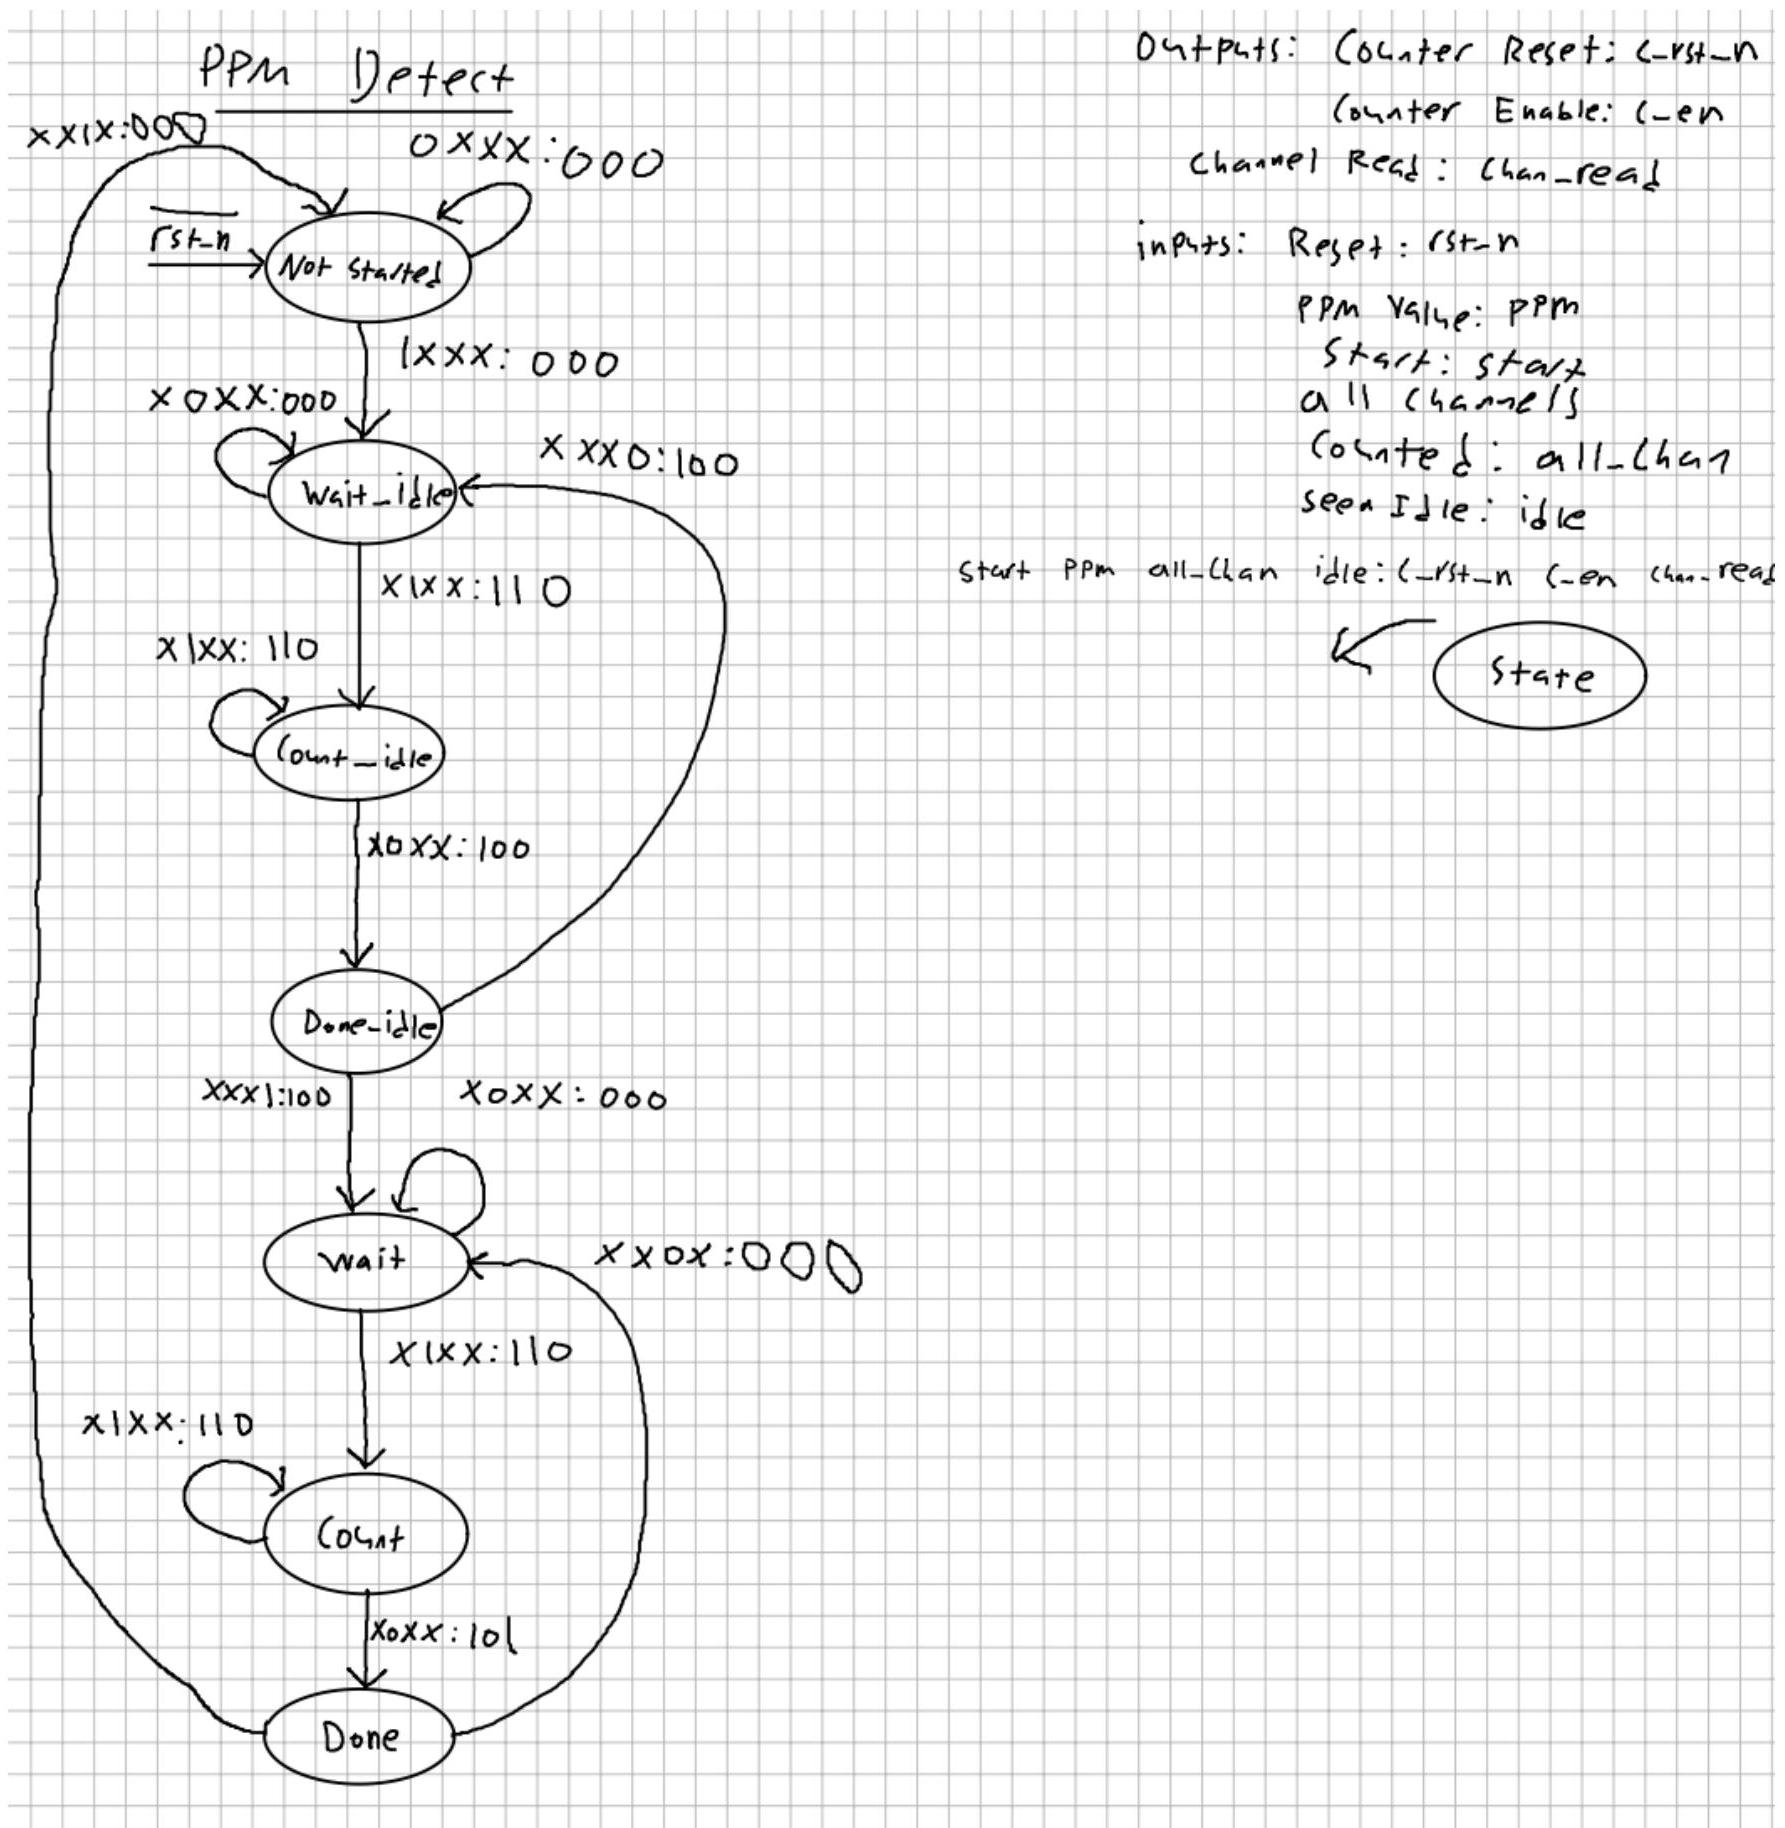 PPM Detect
xx1x:000
0xxx:000
rst_n
Not started
1xxx:000
x0xx:000
xxx0:100
Wait_idle
x1xx:110
x1xx:110
Count_idle
x0xx:100
Done_idle
xxx1:100
x0xx:000
Wait
xx0x:000
x1xx:110
x1xx:110
Count
x0xx:101
Done
Outputs: Counter Reset: c_rst_n
Counter Enable: c_en
Channel Read: chan_read
inputs: Reset: rst_n
PPM Value: ppm
Start: start
all channels
Counted: all_chan
seen Idle: idle
start ppm all_chan idle: c_rst_n c_en chan_read
State